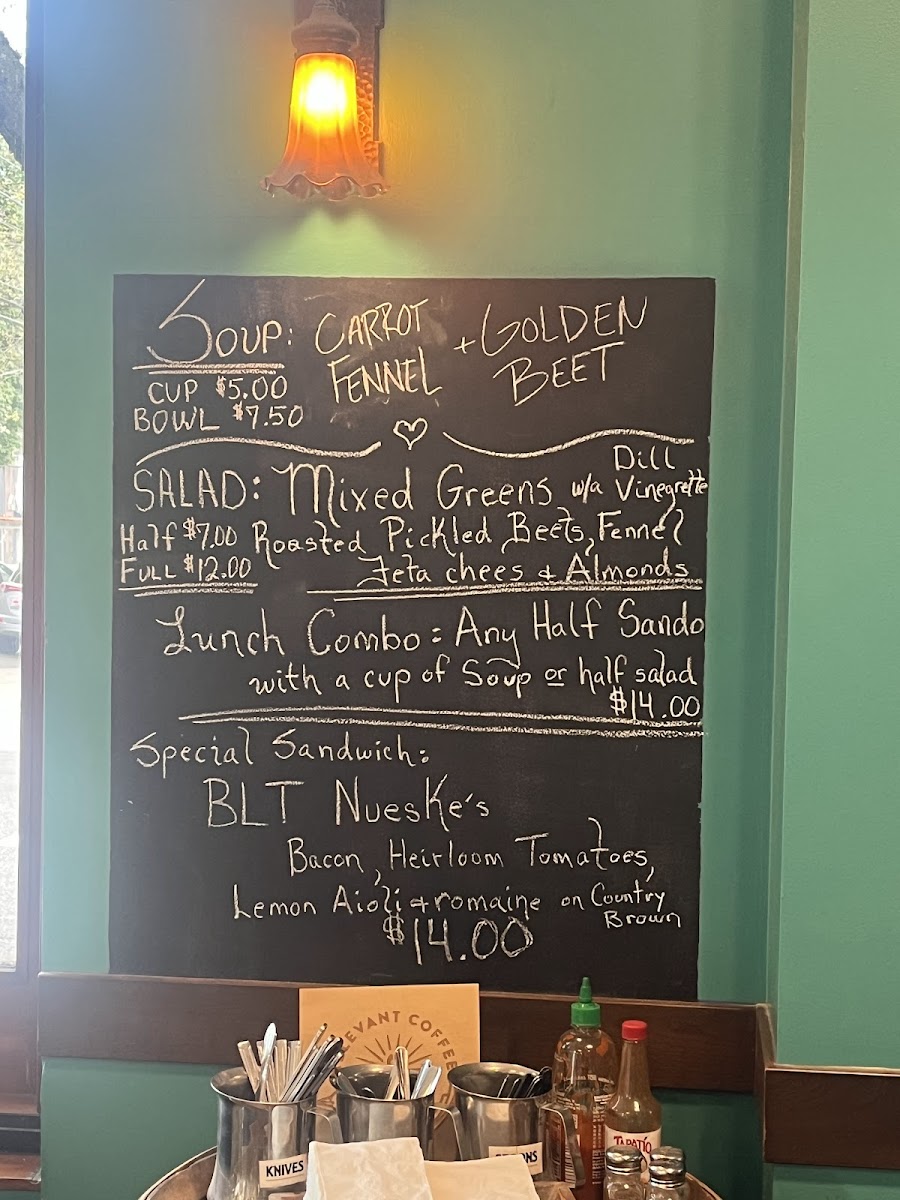 SOUP: CARROT FENNEL + GOLDEN BEET
CUP $5.00
BOWL $7.50
SALAD: Mixed Greens w/a Dill Vinegrette
Half $7.00 Roasted Pickled Beets, Fennel
FULL $12.00 Feta chees & Almonds
Lunch Combo: Any Half Sando
with a cup of Soup or half salad
$14.00
Special Sandwich:
BLT Nueske's
Bacon, Heirloom Tomatoes,
Lemon Aioli + romaine on Country Brown
$14.00
EVANT COFFEE
KNIVES
TAPATÍO